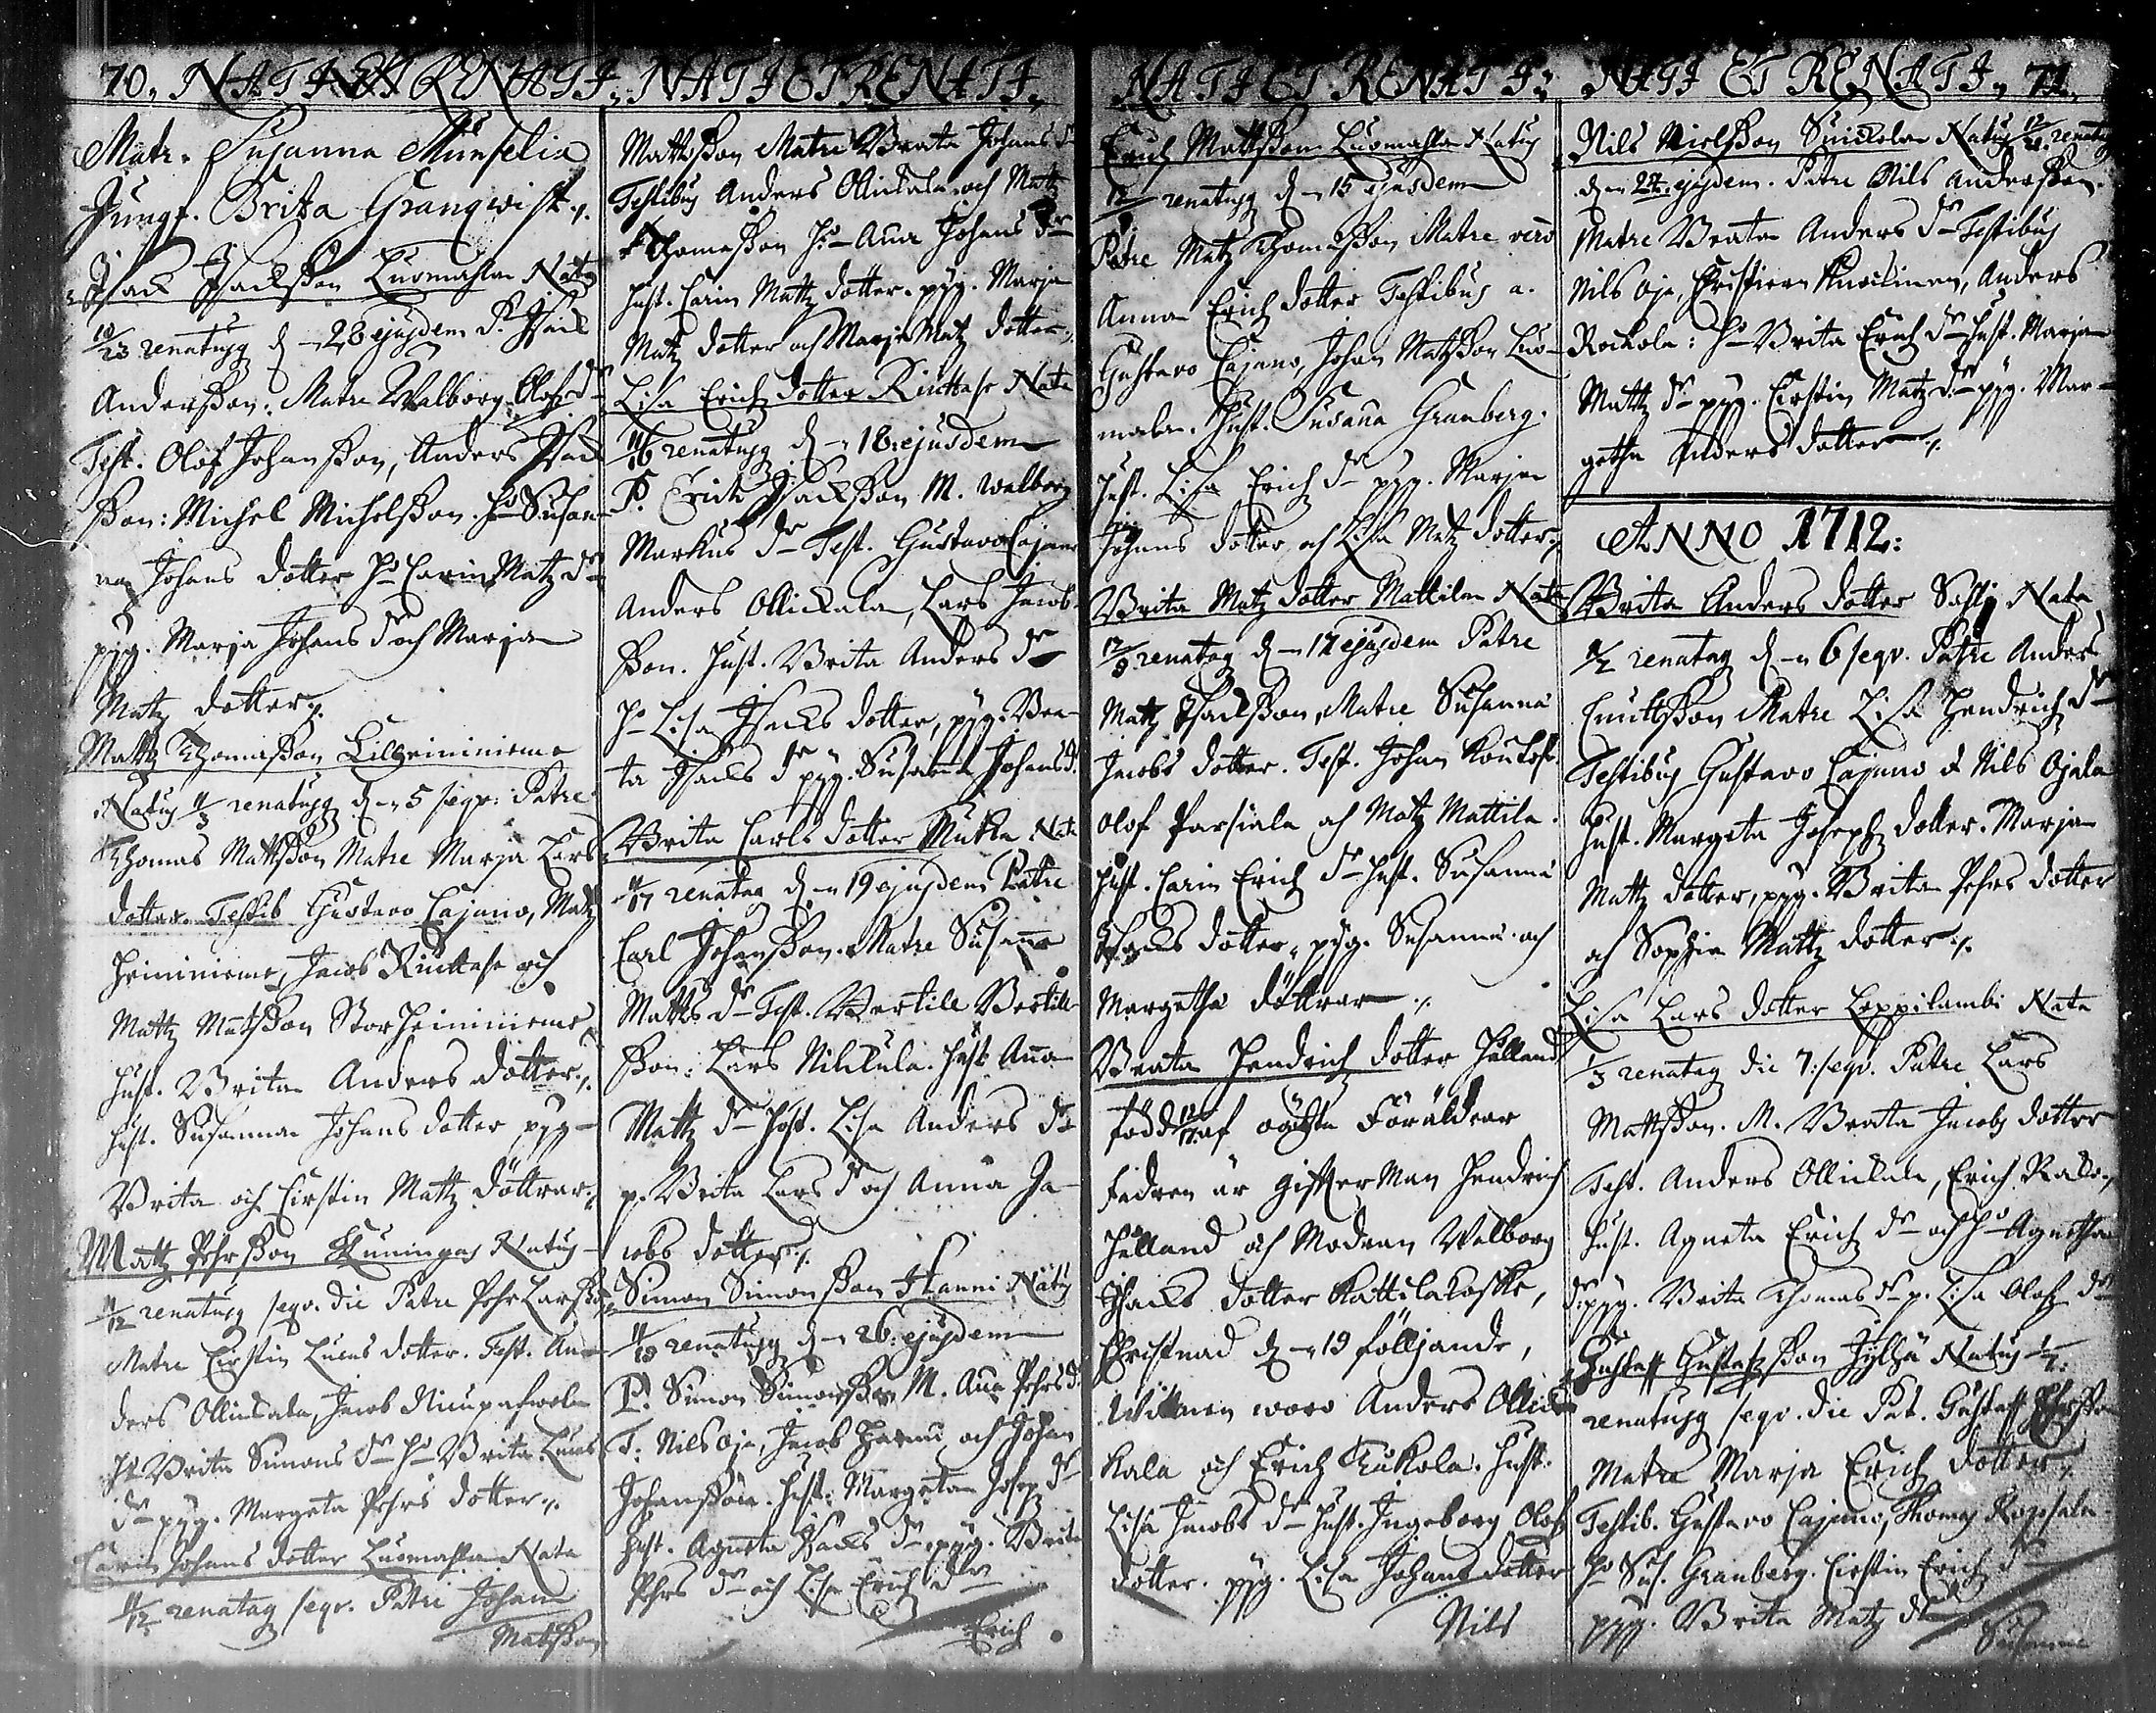 70. NATI ET RENATI. NATI ET RENATI.
Matr. Susanna Munselia
Jungf. Brita Granqwist ./.
Isaac Isacksson Luomahlan Natus
10/23 renatusq d - 28 ejusdem P. Isaac
Andersson. Matre Walborg Olofsdr
Test. Olof Johansson, Anders Isac
sson: Michel Michelsson. H: Susan
na Johans dotter H: Carin Matz dr
pyg. Marja Johans dr och Marja
Matz dotter ./.
Mattz Thomasson Lillheiniemi
Natus 11/3 renatusq d - 5 seqv: Patre
Thomas Mattsson Matre Marja Lars
dotter. Testib Gustavo Cajano, Matz
Heiniemi, Jacob Riuttase och
Mattz Matsson Storheiniemi
Hust. Brita Anders dotter ./.
Hust. Susanna Johans dotter pyg
Brita och Cirstin Mattz döttrar ./.
Matz Pehrsson Kuningas Natus
11/12 renatusq seqv. die Patre Pehr Larsson
Matre Cirstin Lucas dotter. Test. An
ders Ollickala, Jacob
H: Brita Simons dr H: Brita Lucas
dr pyg. Margeta Pehrs dotter ./.
Carin Johans dotter Luomahla Nata
11/12 renataq seqv. Patre Johan
Matsson
Mattsson Matre Beata Johans dr
Testibus Anders Ollickala och Matz
Thomasson H: Anna Johans dr
Hust. Carin Mattz dotter. pyg. Marja
Matz dotter och Marja Matz dotter ./.
Lisa Erich dotter Riuttase Nata
11/16 renatusq d - 18 ejusdem
P. Erich Isacksson M. Walborg
Markus dr Test. Gustavo Cajano
Anders Ollickala, Lars Jacob
sson. Hust. Brita Anders dr
H: Lisa Isacks dotter, pyg. Bea
ta Isacks dr pyg. Susanna Johans d.
Brita Carls dotter Mukka Nata
11/17 renataq d - 19 ejusdem Patre
Carl Johansson. Matre Susanna
Matts dr Test. Bertill Bertill
sson: Lars Nikkula. Hust. Anna
Mattz dr Hust. Lisa Anders dr
p. Brita Lars dr och Anna Ja
cobs dotter ./.
Simon Simonsson Hanni Natus
11/19 renatusq d - 26. ejusdem
P. Simon Simonsson M. Anna Pehrs d.
T. Nils Oja, Jacob Hanni och Johan
Johansson. Hust: Margeta Josep dr
Hust. Agneta Isacks dr pyg. Brita
Pehrs dr och Lisa Erich dr
Erich
NATI ET RENATI: NATI ET RENATI. 71.
Erich Mattsson Luomahla Natus
12/ renatusq d - 15 ejusdem
Patre Matz Thomasson Matre vero
Anna Erich dotter Testibus a.
Gustavo Cajano, Johan Matsson Luo
mala. Hust. Susana Granberg.
Hust. Lisa Erich dr pyg. Marja
Johans dotter och Lisa Matz dotter ./.
Brita Matz dotter Mattila Nata
12/9 renataq d - 12 ejusdem Patre
Mattz Isacksson, Matre Susanna
Jacobs dotter. Test. Johan
Olof Parsiala och Matz Mattila.
Hust. Carin Erich dr Hust. Susanna
Isacks dotter, pyg. Susanna och
Margetha döttrar ./.
Beata Hendrich dotter Hälland
född 12/17 af oächta Föräldrar
Fadren är gifter Man Hendrich
Hälland och Modren Walborg
Isacks dotter Kattilakoske,
Christnad d - 19 följande,
Wittnen woro Anders Ollic
kala och Erich Kukola. Hust.
Lisa Jacobs dr Hust. Ingeborg Olofs
dotter. pyg. Lisa Johans dotter
Nils
Nils Nielsson Suickola Natus 12/21 renatusq
d - 22. ejusdem. Patre Nils Andersson
Matre Beata Anders dr Testibus
Nils Oja, Christiern, Anders
Rockola: H: Brita Erich dr Hust. Marja
Mattz dr pyg. Cirstin Matz dr pyg. Mar
getha Anders dotter ./.
ANNO 1712:
Brita Anders dotter Nata
1/2 renataq d - 6 seqv. Patre Anders
Matre Lisa Hendrich dr
Testibus Gustavo Cajano & Nils Ojala
Hust. Margeta Joseph dotter. Marja
Mattz dotter, pyg. Brita Pehrs dotter
och Sophia Mattz dotter ./.
Lisa Lars dotter Leppilambi Nata
1/3 renataq die 7: seqv. Patre Lars
Mattsson. M. Beata Jacobs dotter
Test. Anders Ollickala, Erich
Hust. Agneta Erich dr och H: Agnetha
dr pyg. Brita Thomas dr p. Lisa Olofs dr
Gustaff Gustafsson Jylhä Natus 1/7.
renatusq seqv. die Pat. Gustaff
Matre Marja Erich dotter ./.
Testib. Gustavo Cajano, Thomas
H: Sus. Granberg. Cirstin Erich dr
pyg. Brita Matz dr
Susanna